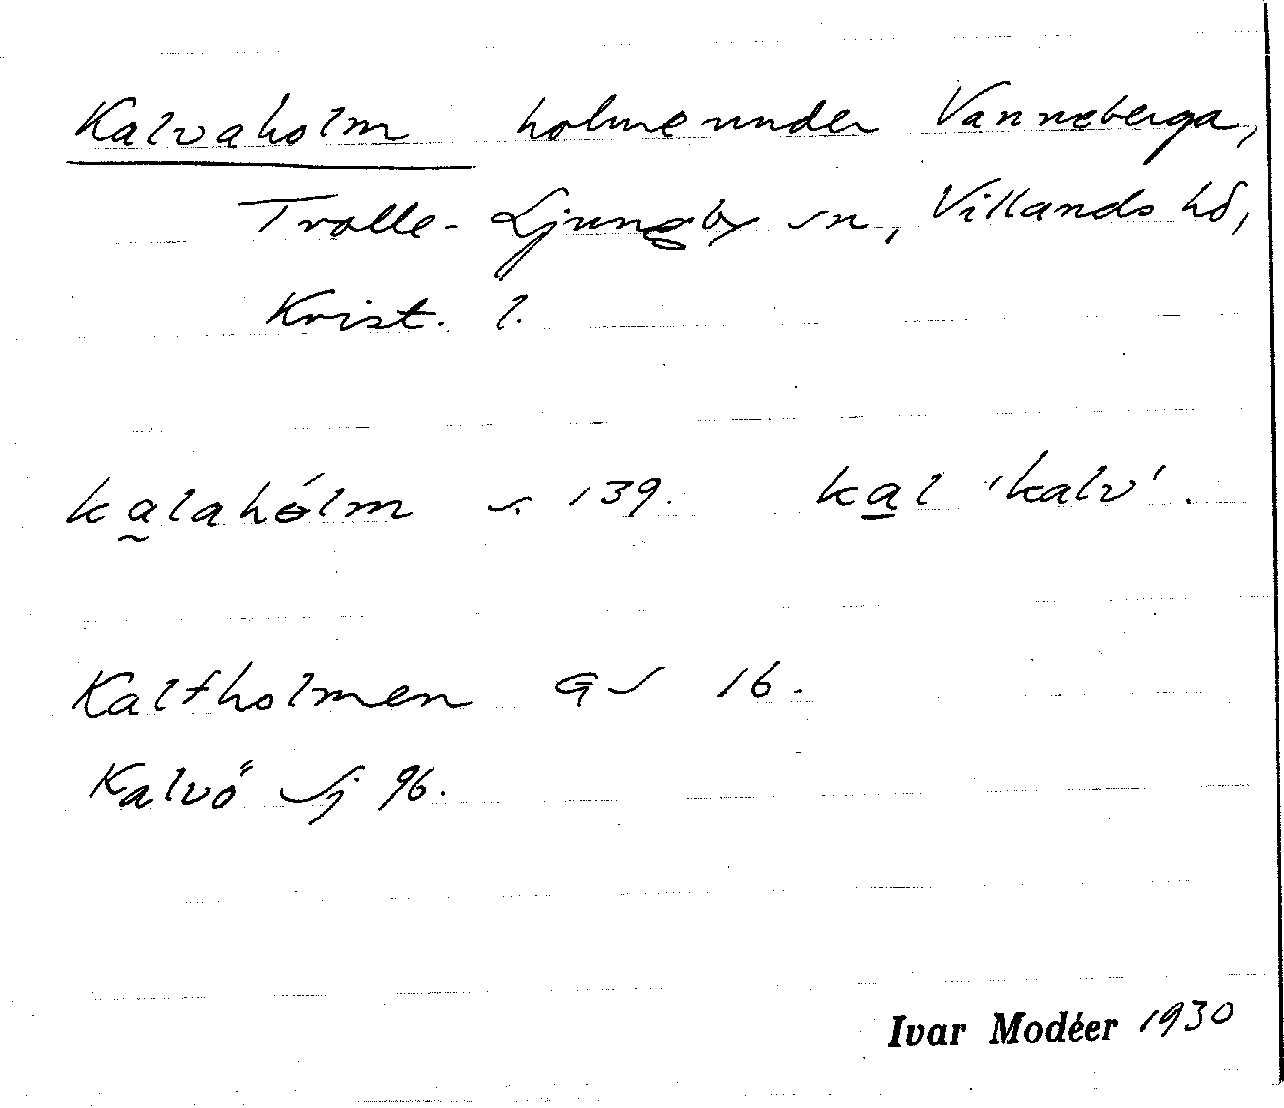 Kalvaholm holme under Vanneberga,
Trolle-Ljungby sn, Villands hd,
Krist. l.
kalahólm s. 139. kal 'kalv'.
Kalfholmen GS 16.
Kalvö Sj 96.
Ivar Modéer 1930